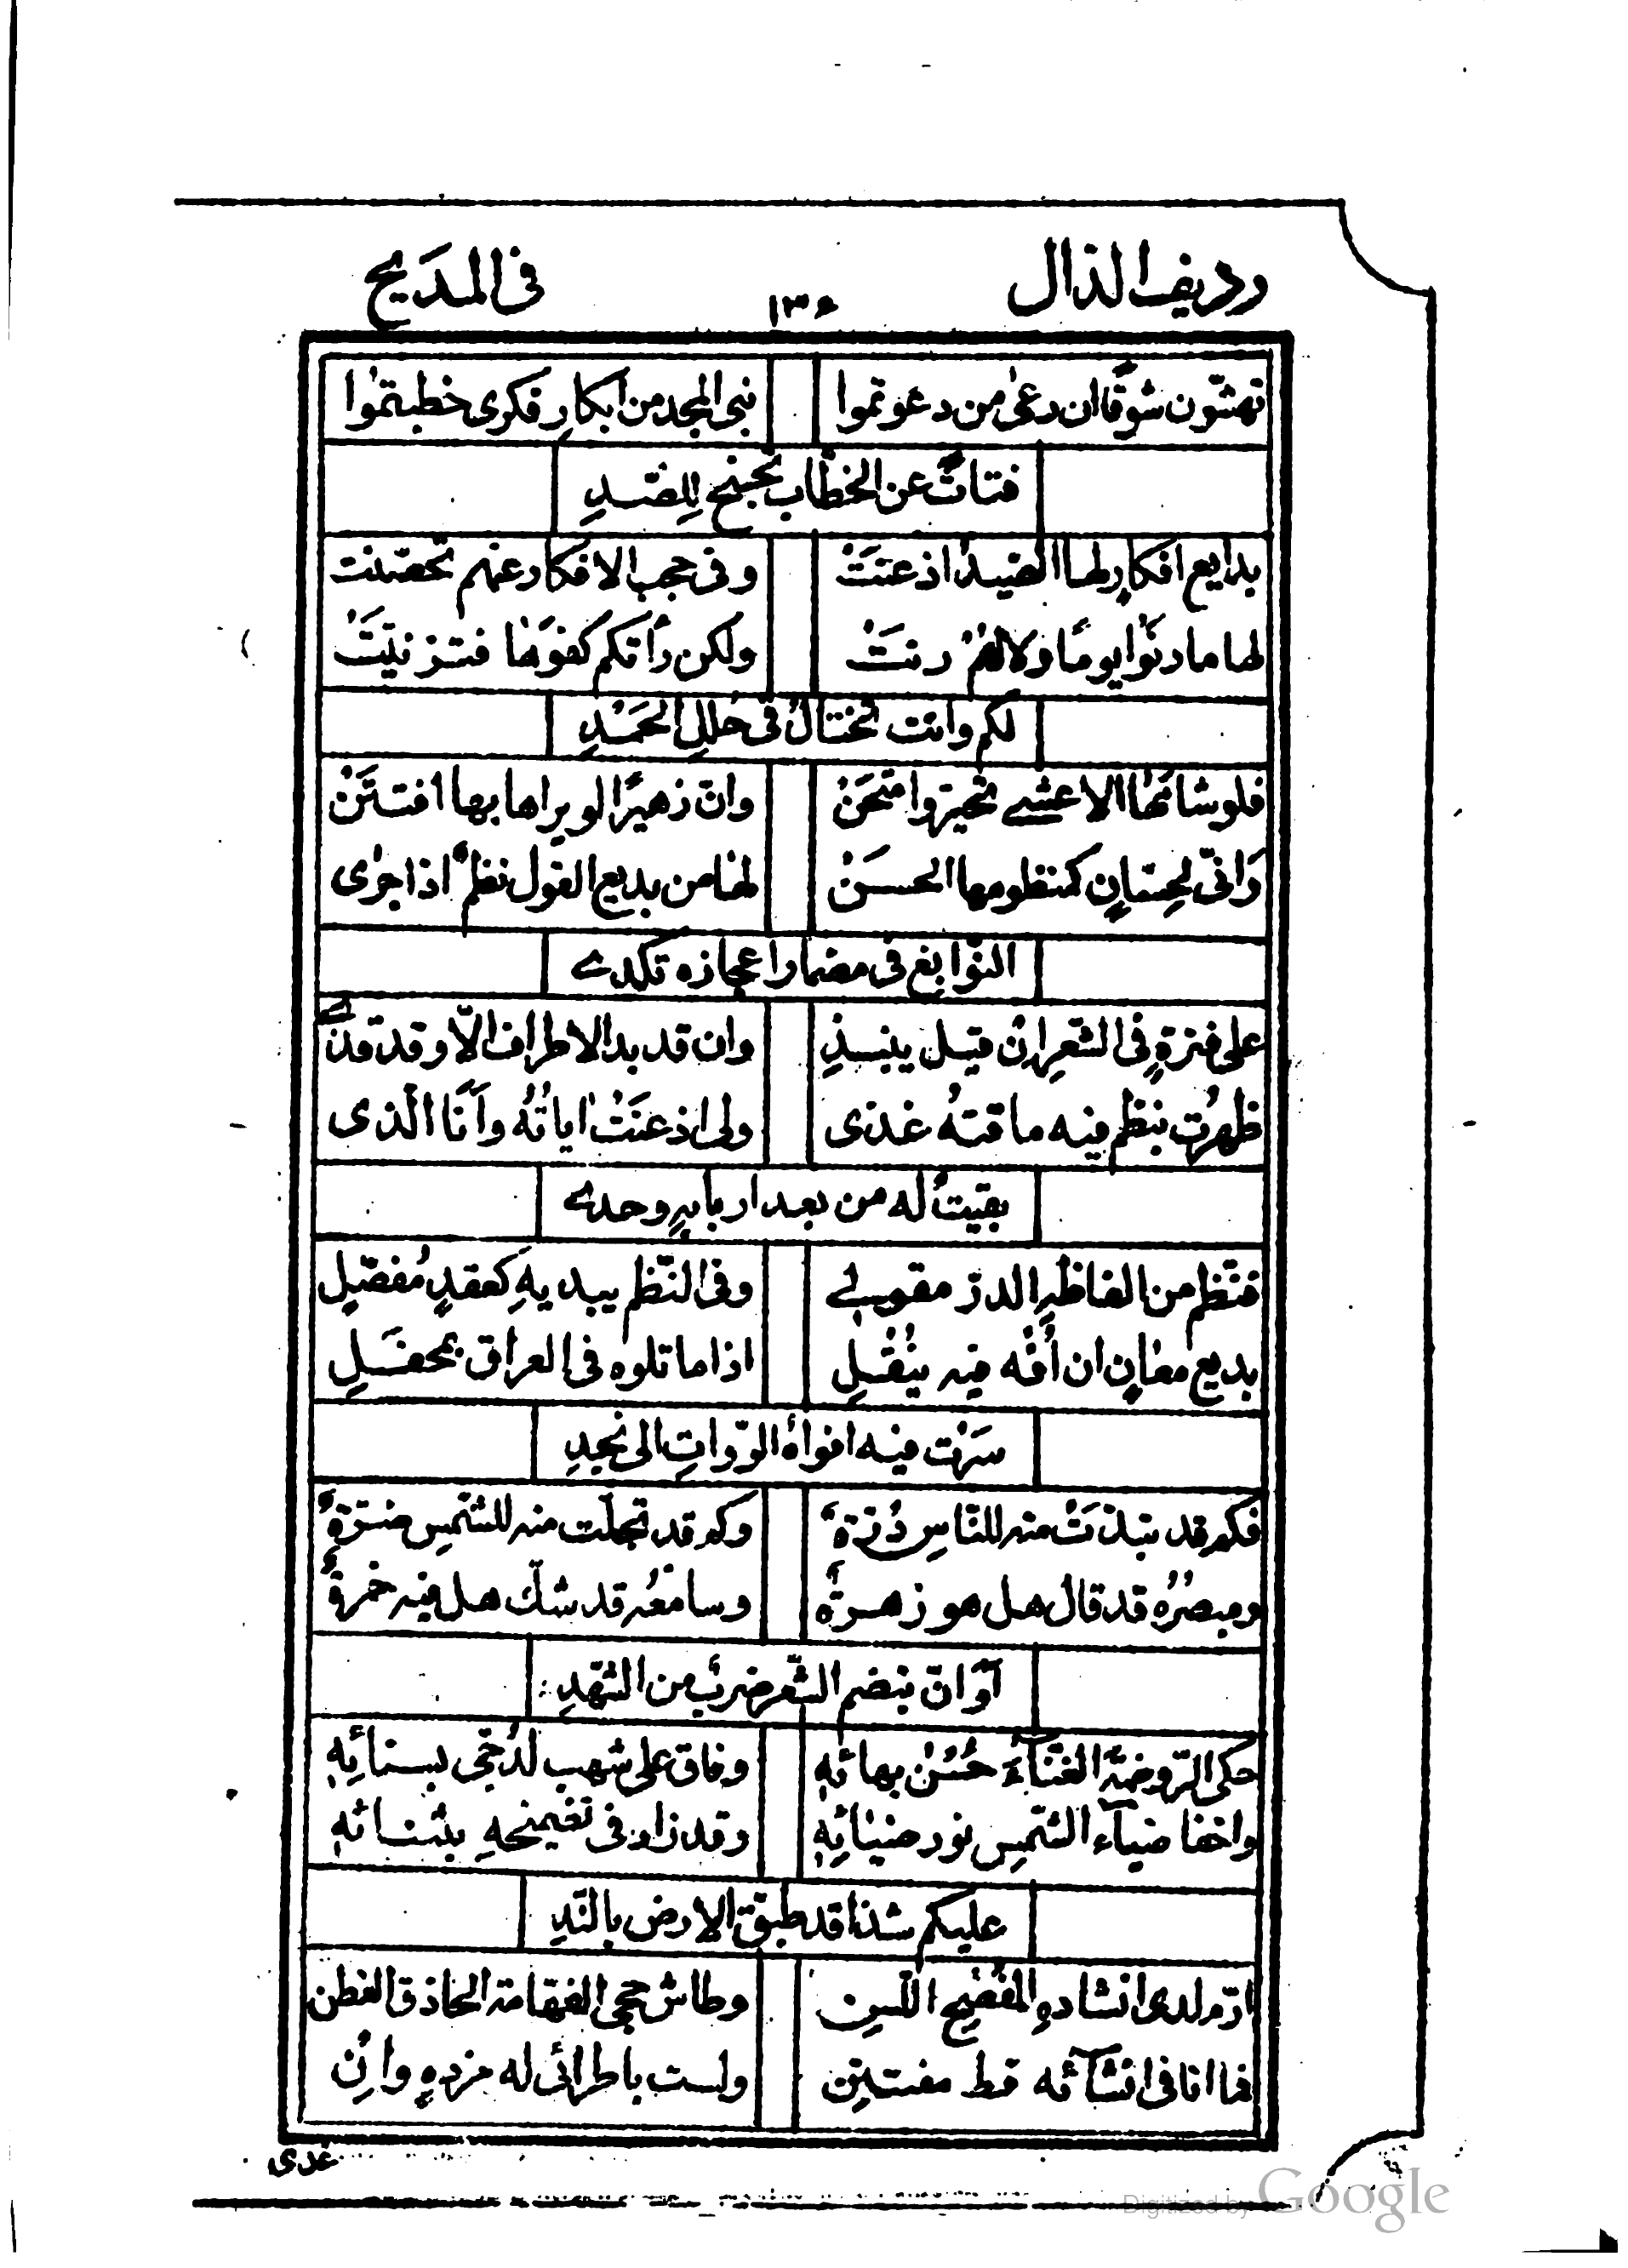 رديف الذال ١٣٤ في المديح
تهشّون شوقًا ان دعیٰ من دعوتموا بنى المجد من ابكارِ فكرى خطبتمُوا
فتاتٌ عن الخطّاب تجنح لِلصّدِ
بدايع افكارٍ لها الصّيدُ اذعنَتْ وفى حجب الافكار عنهم تحصّنت
لها ما دنَوْا يومًا ولا لهُمْ دنتْ ولكن رأتكم كفوَها فتزنيّتْ
لكم وانت تختالُ فى حُللِ الحَمْدِ
فلو شامَها الاعشے تحيّر وامتحَنْ وانّ زهيرًا لو يراها بها افتتَنْ
وَانّى لحِسّانٍ كمنظومها الحسَنْ لها من بديع القول نظمٌ اذا جرى
النّوابغ فى مضمار اعجازه تكدے
على فترةٍ فى الشّعر اِنْ قيل ينبذِ وان قد بدا الاطراف الّا وقد قدْ
ظهرْت بنظمٍ فيه ما قتهُ غذى ولى اذعنَتْ اياتُهُ وآنَا الّذى
بقيتُ له من بعد اربابهِ وحدے
فنظم من الفاظهِ الدرّ مقولے وفى النّظم يبديهِ كعقدٍ مُفصّلِ
بديع معانٍ ان اَفُهْ فيه ينْقُلِ اذا ما تلوه فى العراق بمحفَلِ
سَرَتْ فيه افواهُ الرّواتِ الى نجدِ
فكم قد تبدّتْ منه للنّاس دُرّةٌ وكم قد تجلّت منه للشّمس ضرّةٌ
ومبصرُهُ قد قال هل هو زهرةٌ وسامعُه قد شكّ هل فيه خمرةٌ
آوْ انّ بنضم الشّعر ضربٌ من الشّهدِ
حكى الرّوضةَ الغنّآءَ حُسْنُ بهائهِ وفاق على شهب لدُجّى بسنائِهِ
واخفا ضيآء الشّمس نور ضيائِهِ وقد زاد فى تغيمنحهِ بثنائهِ
عليكم شذا قد طبّق الارض بالنّدِ
ارّم لدى انشادهِ المُفصِح اللّسِن وطاش حجى الفهّامة الحاذق الفطن
فما انا فى انشآئه قط مفتتِن ولست باطرائى له مزدهٍ وانِ
غدى
Digitized by Google